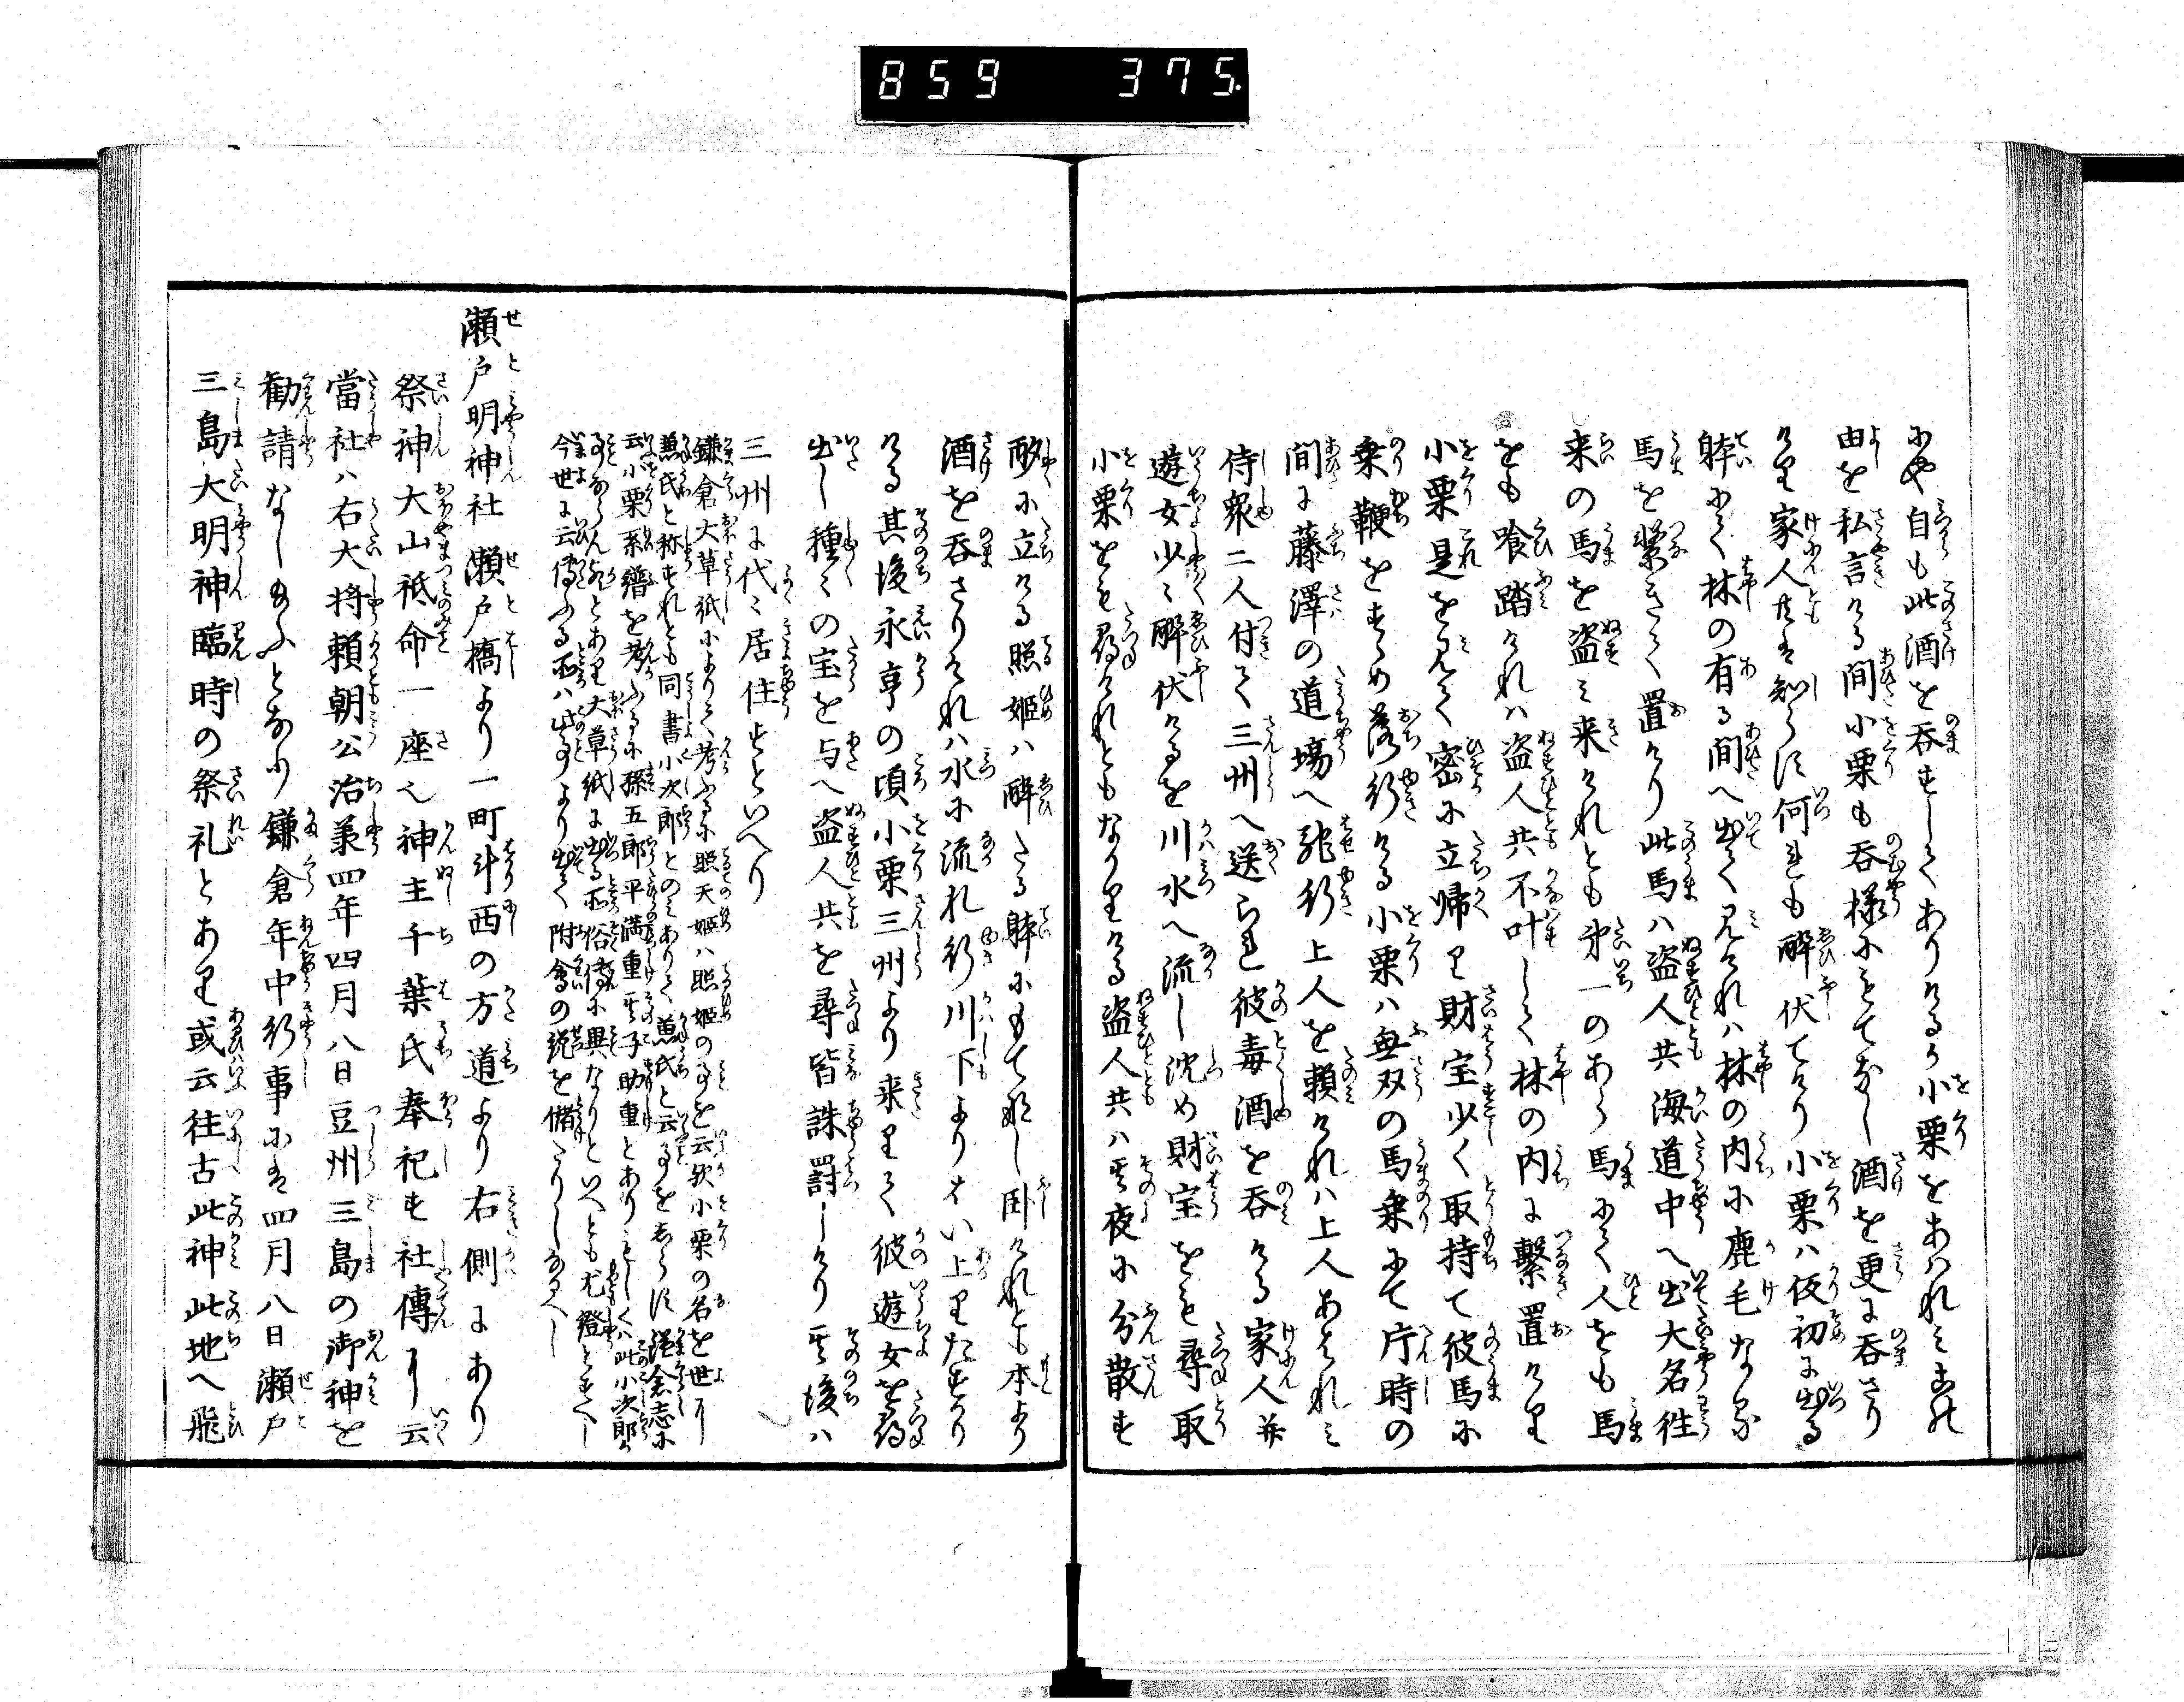 859 375.
にや自も此酒を呑すしてありけるか小栗をあはれみ此
由を私言ける間小栗も呑様にもてなし酒を更に呑さり
けり家人共は知らす何も酔伏てけり小栗ハ仮初に出る
躰にて林の有る間へ出て見けれハ林の内に鹿毛なる
馬を繋きて置けり此馬ハ盗人共海道中へ出大名往
来の馬を盗み来けれとも第一のあら馬にて人をも馬
をも喰踏けれハ盗人共不叶して林の内に繋置けり
小栗是を見て密に立帰り財宝少く取持て彼馬に
乗鞭をすゝめ落行ける小栗ハ無双の馬乗にて片時の
間に藤澤の道場へ馳行上人を頼けれハ上人あはれみ
侍衆二人付て三州へ送らる彼毒酒を呑ける家人并
遊女少々酔伏けるを川水へ流し沈め財宝をも尋取
小栗をも尋けれともなかりける盗人共ハ其夜に分散す
酌に立ける照姫ハ酔たる躰にもてなし臥けれとも本より
酒を呑さりけれハ水に流れ行川下よりはい上りたすかり
ける其後永享の頃小栗三州より来りて彼遊女を尋
出し種々の宝を与へ盗人共を尋皆誅罸しけり其後ハ
三州に代々居住すといへり
鎌倉大草紙によりて考ふるに照天姫ハ照姫の事を云歟小栗の名を世に
萬氏と称すれとも同書小次郎とのみありて萬氏と云事をしらす鎌倉志に
云小栗系譜を考ふるに孫五郎平満重其子助重とありもしくハ此小次郎か
事ならん歟とあり大草紙に出る所俗傳に異なりといへとも尤證とすへし
今世に云傳ふる所ハ此事より出て附會の説を備たりしなるへし
瀬戸明神社 瀬戸橋より一町斗西の方道より右側にあり
祭神大山祇命一座也神主千葉氏奉祀す社傳に云
當社ハ右大将頼朝公治承四年四月八日豆州三島の御神を
勧請なし給ふとなり鎌倉年中行事には四月八日瀬戸
三島大明神臨時の祭礼とあり或云往古此神此地へ飛